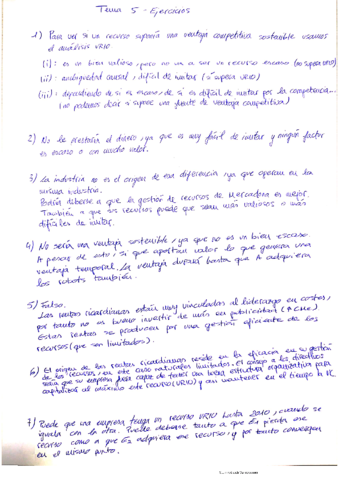 Tema 5 - Ejercicios
1) Para ver si un recurso supone una ventaja competitiva sostenible usamos
el análisis VRIO
(i): es un bien valioso, pero no va a ser un recurso escaso (no supera VRIO)
(ii): ambigüedad causal, difícil de imitar (sí supera VRIO)
(iii): dependiendo de si es escaso, de si es difícil de imitar por la competencia...
(no podemos decir si supone una fuente de ventaja competitiva)
2) No le prestaría el dinero, ya que es muy fácil de imitar y ningún factor
es escaso o con mucho valor.
3) La industria no es el origen de esa diferencia ya que operan en la
misma industria.
Podría deberse a que la gestión de recursos de Mercadona es mejor.
También a que sus recursos puede que sean más valiosos o más
difíciles de imitar.
4) No sería una ventaja sostenible, ya que no es un bien escaso.
A pesar de esto, sí que aportan valor lo que genera una
ventaja temporal. La ventaja durará hasta que A adquiera
los robots también.
5) Falso.
Las rentas ricardianas están muy vinculadas al liderazgo en costes,
por tanto no es bueno invertir de más en publicidad
Estas rentas se producen por una gestión eficiente de los
recursos (que son limitados).
6) El origen de las rentas ricardianas reside en la eficacia en la gestión
de los recursos, en este caso naturales limitados. El consejo a los directivos
sería que su empresa fuera capaz de tener una buena estructura organizativa para
capitalizar al máximo este recurso (VRIO) y así mantener en el tiempo la VC
7) Puede que una empresa tenga un recurso VRIO hasta 2010, cuando se
iguala con la otra. Puede deberse tanto a que E1 pierda ese
recurso como a que E2 adquiera ese recurso, y por tanto convergen
en el mismo punto.